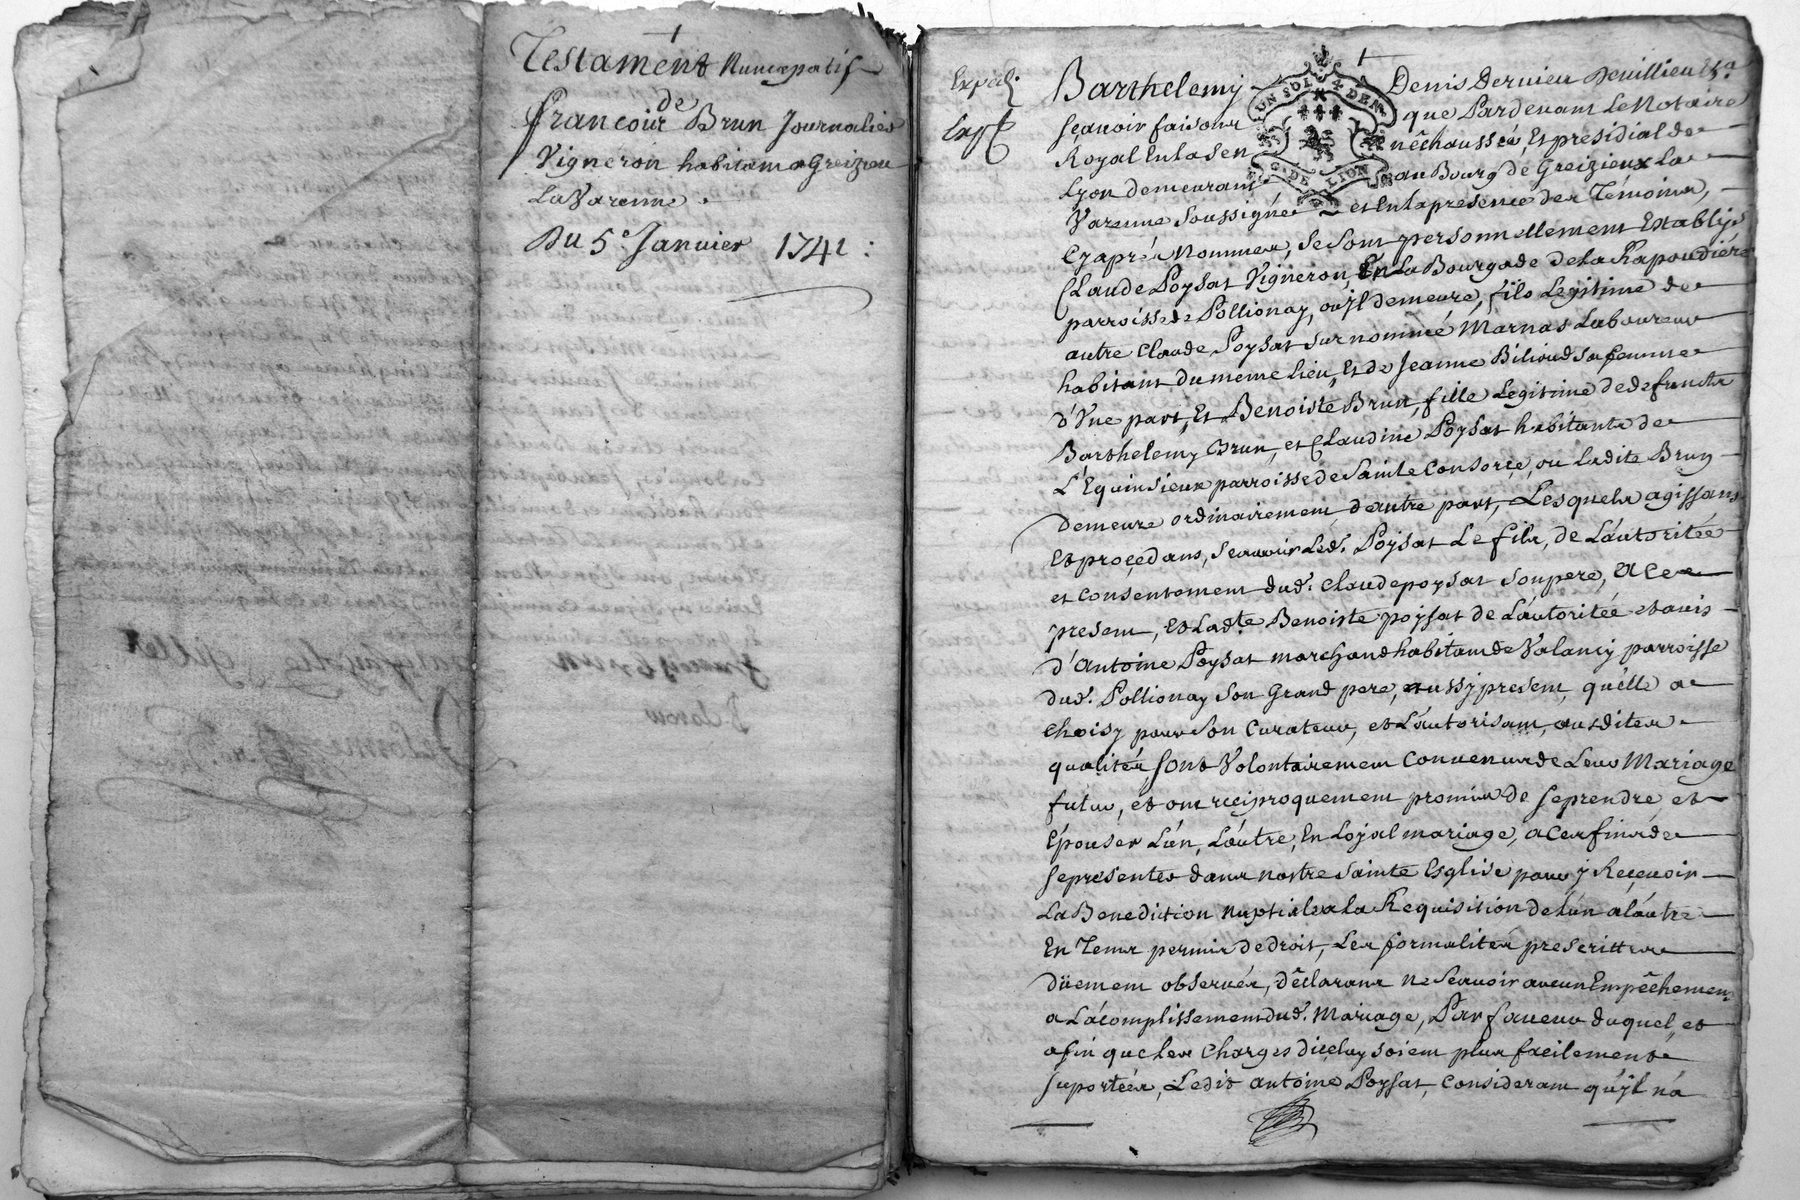 Testament Nuncupatif
de
francois Brun Journalier
Vigneron habitant a Greizieu
La Varenne.
Du 5e. Janvier 1741:
Exped.
Exp
Barthelemy Denis Dervieu Devillieu Esr.
sçavoir faisons que Pardevant Le Notaire
Royal En la Sen nêchaussée Et présidial de
Lyon demeurant au Bourg de Greizieux La
Varenne Soussigné et En la presence des Temoins,
Cy aprés Nommes, se Sont personnellement Establys
Claude Poysat Vigneron, En La Bourgade de la Rapoudiére
parroisse de Pollionay, ou jl demeure, fils Legitime de
autre Claude Poysat Surnommé Marnas Laboureur
habitant du meme lieu, Et de Jeanne Bilioud sa femme
d'Vne part, Et Benoiste Brun, fille Legitime de defuncts
Barthelemy Brun, et Claudine Poysat habitante de
L'Equinsieux parroisse de Sainte Consorce, ou ladite Brun
demeure ordinairement d'autre part, Lesquels agissans
Et procedans, sçavoir Led. Poysat Le fils, de L'autoritée
et consentement dud. Claude poysat son pere, a Ce
present, Et Lad.te Benoiste poysat de L'autoritée et avis
d'Antoine Poysat marchand habitant de Valancy parroisse
dud. Pollionay son Grand pere, aussy present, qu'elle a
choisy pour Son Curateur, et L'autorisant, ausdites
qualités sont Volontairement Convenus de Leur Mariage
futur, et ont reciproquement promis de se prendre, et
Epouser L'un, L'autre, En Loyal mariage, a Ces fins de
se presenter dans nostre Sainte Esglise pour y Recevoir
La Benediction nuptiale a la Requisition de L'un a l'autre
En Tems permis de droit, Les formalités prescrittes
düement observés, dêclarans ne Sçavoir aucun Empêchement
a L'acomplissement dud. Mariage, Par faveur duquel, et
afin que les Charges d'iceluy soient plus facilement
suportées, Ledit Antoine Poysat, Considerant qu'jl n'a